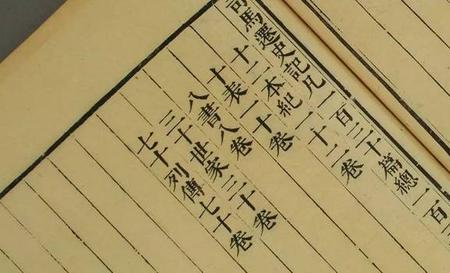 司馬遷史記凡一百三十篇總一百
十二本紀一十二卷
十表一十卷
八書八卷
三十世家三十卷
七十列傳七十卷